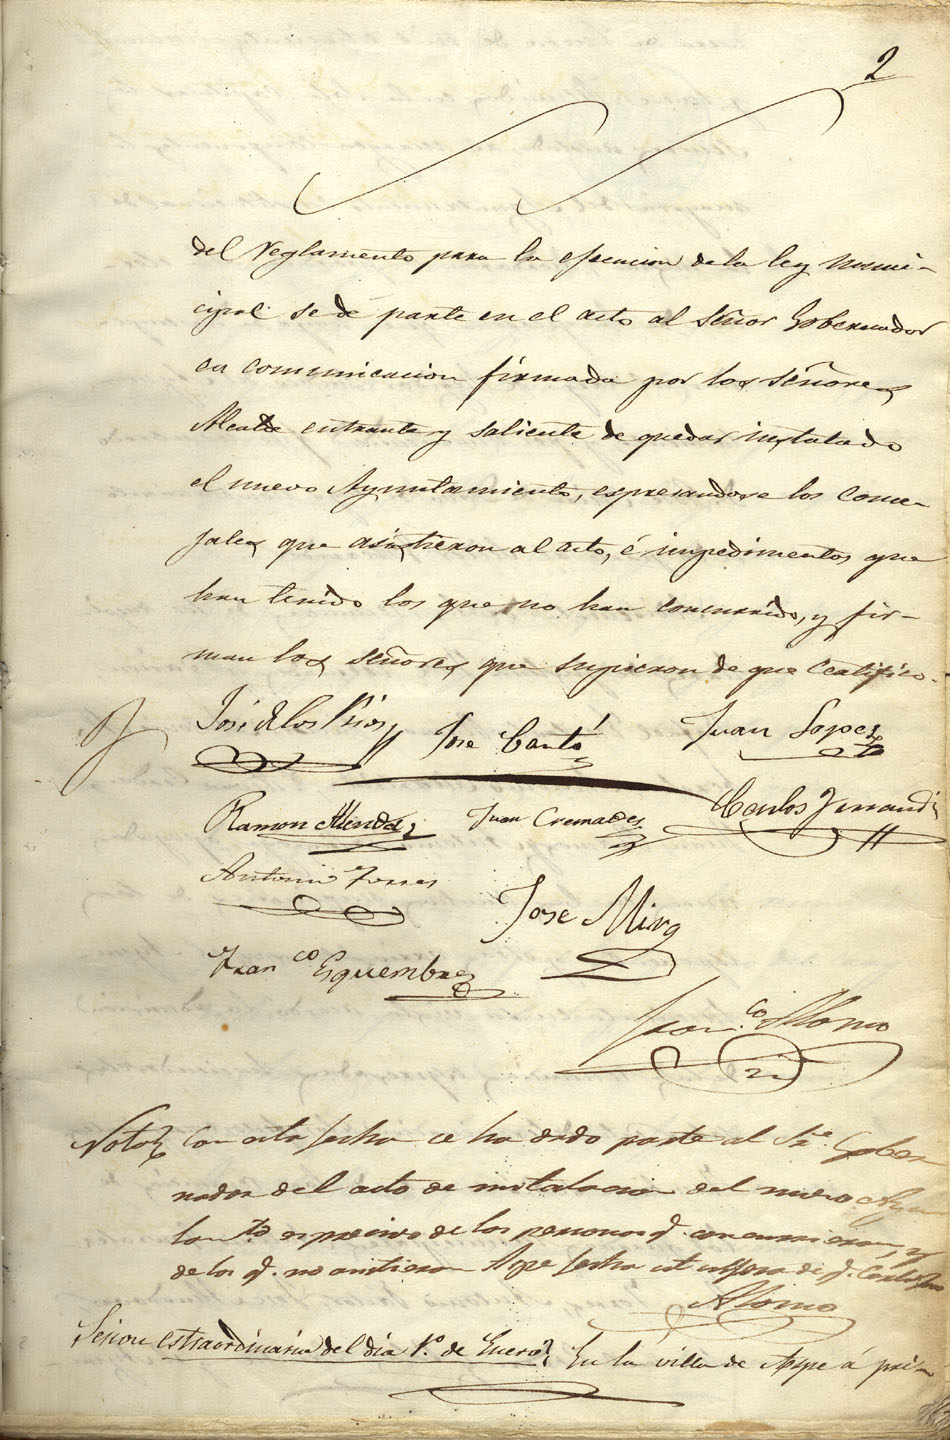 2
del reglamento para la ejecucion de la ley muni-
cipal se dé parte en el acto al Señor Gobernador
en comunicacion firmada por los señores
Alcalde entrante y saliente de quedar instalado
el nuevo Ayuntamiento, espresandose los conce-
jales que asistieron al acto, é impedimentos que
han tenido los que no han concurrido, y fir-
man los señores que supieron de que certifico.
José de los Rios Jose Cantó Juan Lopez
Ramon Juan Cremades Carlos
Antonio Torres Jose Mira
Franco Esquembre
Franco Alonso
Nota Con esta fecha se ha dado parte al Sr. Gober
nador del acto de instalacion del nuevo Ayun
tamto espresivo de las personas q. concurrieron, y
de los q. no asistieron Aspe fecha ut supra de q. Certifico
Alonso
Sesion estraordinaria del dia 1º de Enero En la villa de Aspe á pri-